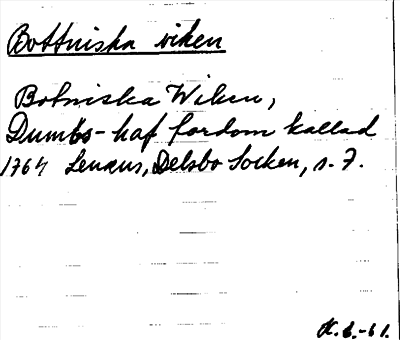 Bottniska viken
Botniska Wiken,
Dumbs-haf fordom kallad
1764 Lenæus, Delsbo Socken, s. 7.
K.G.-61.